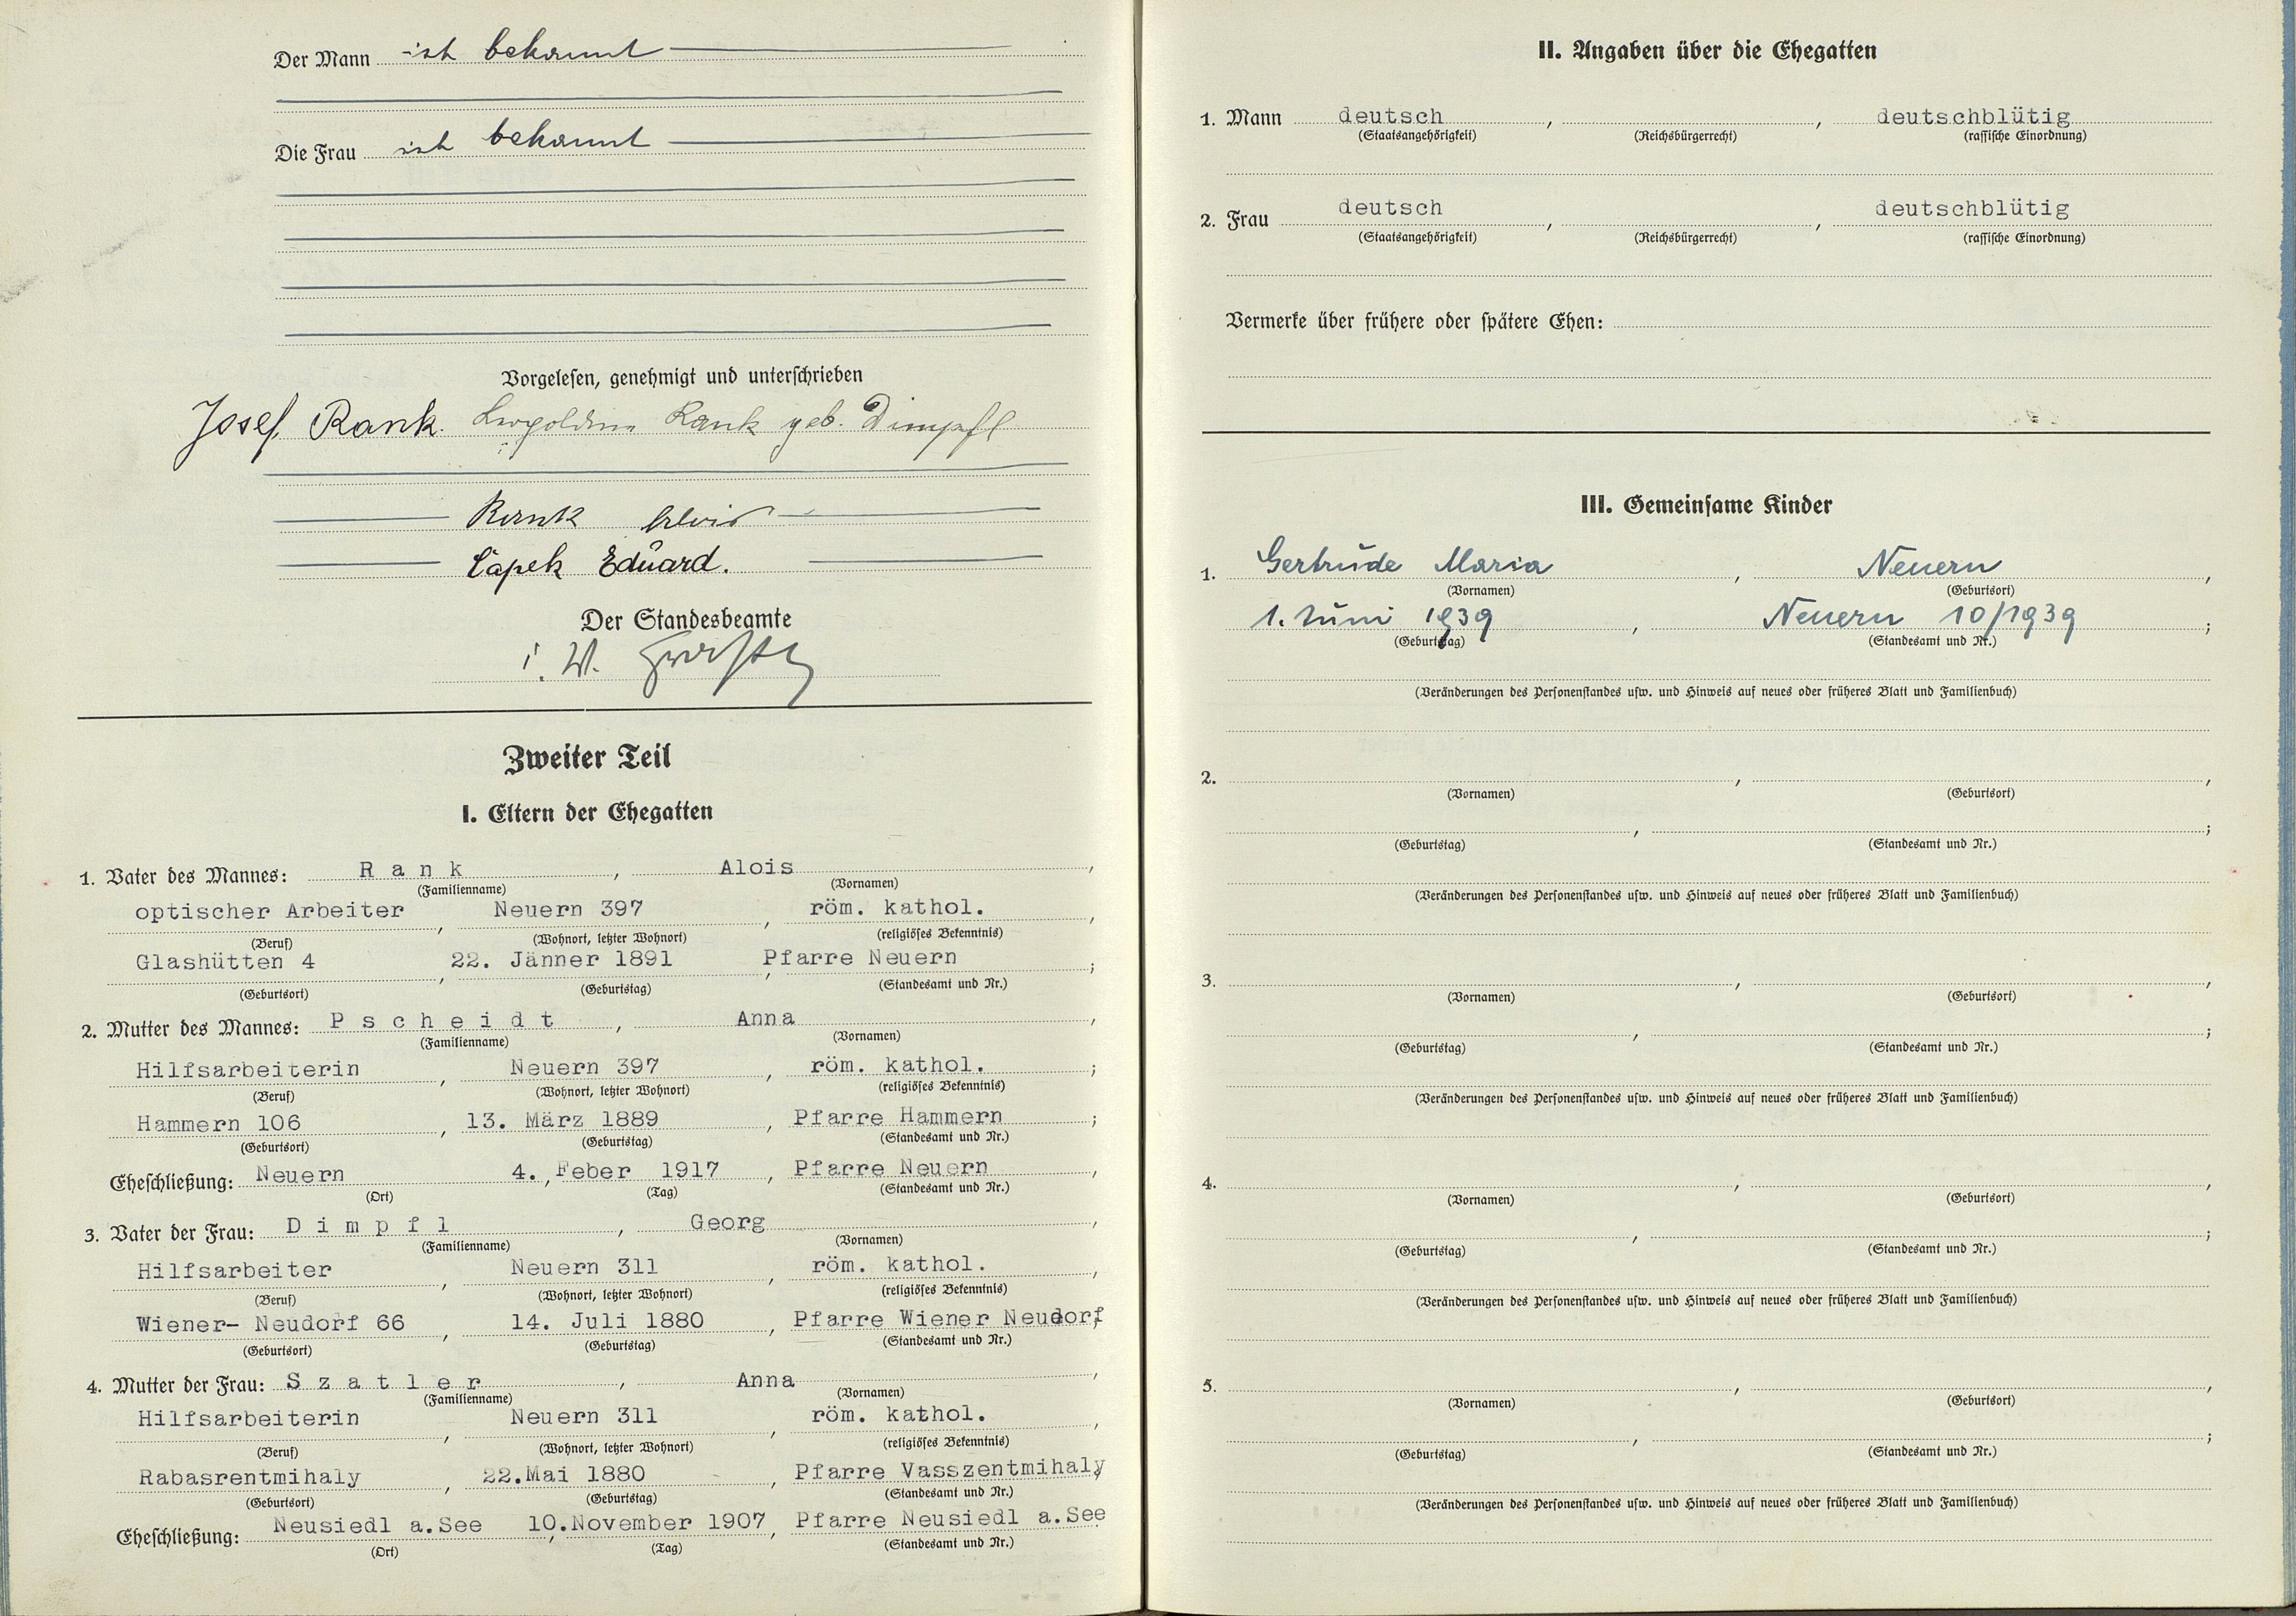 Der Mann ist bekannt
Die Frau ist bekannt
Vorgelesen, genehmigt und unterschrieben
Josef Rank. Leopoldine Rank geb. Dimpfl
Rank Alois
Čapek Eduard.
Der Standesbeamte
Zweiter Teil
I. Eltern der Ehegatten
1. Vater des Mannes: Rank, Alois,
(Familienname) (Vornamen)
optischer Arbeiter, Neuern 397, röm. kathol.,
(Beruf) (Wohnort, letzter Wohnort) (religiöses Bekenntnis)
Glashütten 4, 22. Jänner 1891, Pfarre Neuern;
(Geburtsort) (Geburtstag) (Standesamt und Nr.)
2. Mutter des Mannes: Pscheidt, Anna,
(Familienname) (Vornamen)
Hilfsarbeiterin, Neuern 397, röm. kathol.;
(Beruf) (Wohnort, letzter Wohnort) (religiöses Bekenntnis)
Hammern 106, 13. März 1889, Pfarre Hammern;
(Geburtsort) (Geburtstag) (Standesamt und Nr.)
Eheschließung: Neuern, 4. Feber 1917, Pfarre Neuern,
(Ort) (Tag) (Standesamt und Nr.)
3. Vater der Frau: Dimpfl, Georg,
(Familienname) (Vornamen)
Hilfsarbeiter, Neuern 311, röm. kathol.,
(Beruf) (Wohnort, letzter Wohnort) (religiöses Bekenntnis)
Wiener- Neudorf 66, 14. Juli 1880, Pfarre Wiener Neudorf;
(Geburtsort) (Geburtstag) (Standesamt und Nr.)
4. Mutter der Frau: Szatler, Anna,
(Familienname) (Vornamen)
Hilfsarbeiterin, Neuern 311, röm. kathol.,
(Beruf) (Wohnort, letzter Wohnort) (religiöses Bekenntnis)
Rabasrentmihaly, 22.Mai 1880, Pfarre Vasszentmihaly;
(Geburtsort) (Geburtstag) (Standesamt und Nr.)
Eheschließung: Neusiedl a.See, 10.November 1907, Pfarre Neusiedl a.See
(Ort) (Tag) (Standesamt und Nr.)
II. Angaben über die Ehegatten
1. Mann deutsch, , deutschblütig
(Staatsangehörigkeit) (Reichsbürgerrecht) (rassische Einordnung)
2. Frau deutsch, , deutschblütig
(Staatsangehörigkeit) (Reichsbürgerrecht) (rassische Einordnung)
Vermerke über frühere oder spätere Ehen:
III. Gemeinsame Kinder
1. Gertrude Maria, Neuern,
(Vornamen) (Geburtsort)
1. Juni 1939, Neuern 10/1939;
(Geburtstag) (Standesamt und Nr.)
(Veränderungen des Personenstandes usw. und Hinweis auf neues oder früheres Blatt und Familienbuch)
2. , ,
(Vornamen) (Geburtsort)
, ;
(Geburtstag) (Standesamt und Nr.)
(Veränderungen des Personenstandes usw. und Hinweis auf neues oder früheres Blatt und Familienbuch)
3. , ,
(Vornamen) (Geburtsort)
, ;
(Geburtstag) (Standesamt und Nr.)
(Veränderungen des Personenstandes usw. und Hinweis auf neues oder früheres Blatt und Familienbuch)
4. , ,
(Vornamen) (Geburtsort)
, ;
(Geburtstag) (Standesamt und Nr.)
(Veränderungen des Personenstandes usw. und Hinweis auf neues oder früheres Blatt und Familienbuch)
5. , ,
(Vornamen) (Geburtsort)
, ;
(Geburtstag) (Standesamt und Nr.)
(Veränderungen des Personenstandes usw. und Hinweis auf neues oder früheres Blatt und Familienbuch)